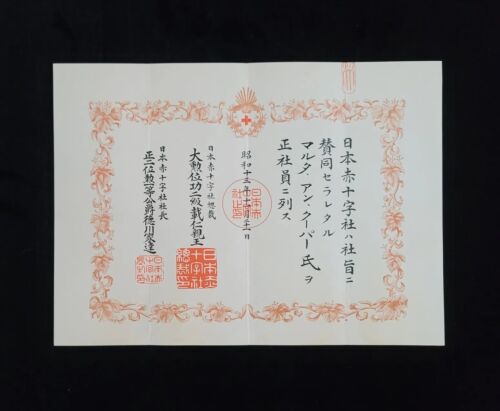 日本赤十字社ハ社旨ニ
賛同セラレタル
マルタ、アン、クーパー氏ヲ
正社員ニ列ス
昭和十三年
日本赤十字社總裁
大勲位功二級載仁親王
日本赤十字社總裁印
日本赤十字社社長
正二位勲一等公爵徳川家達